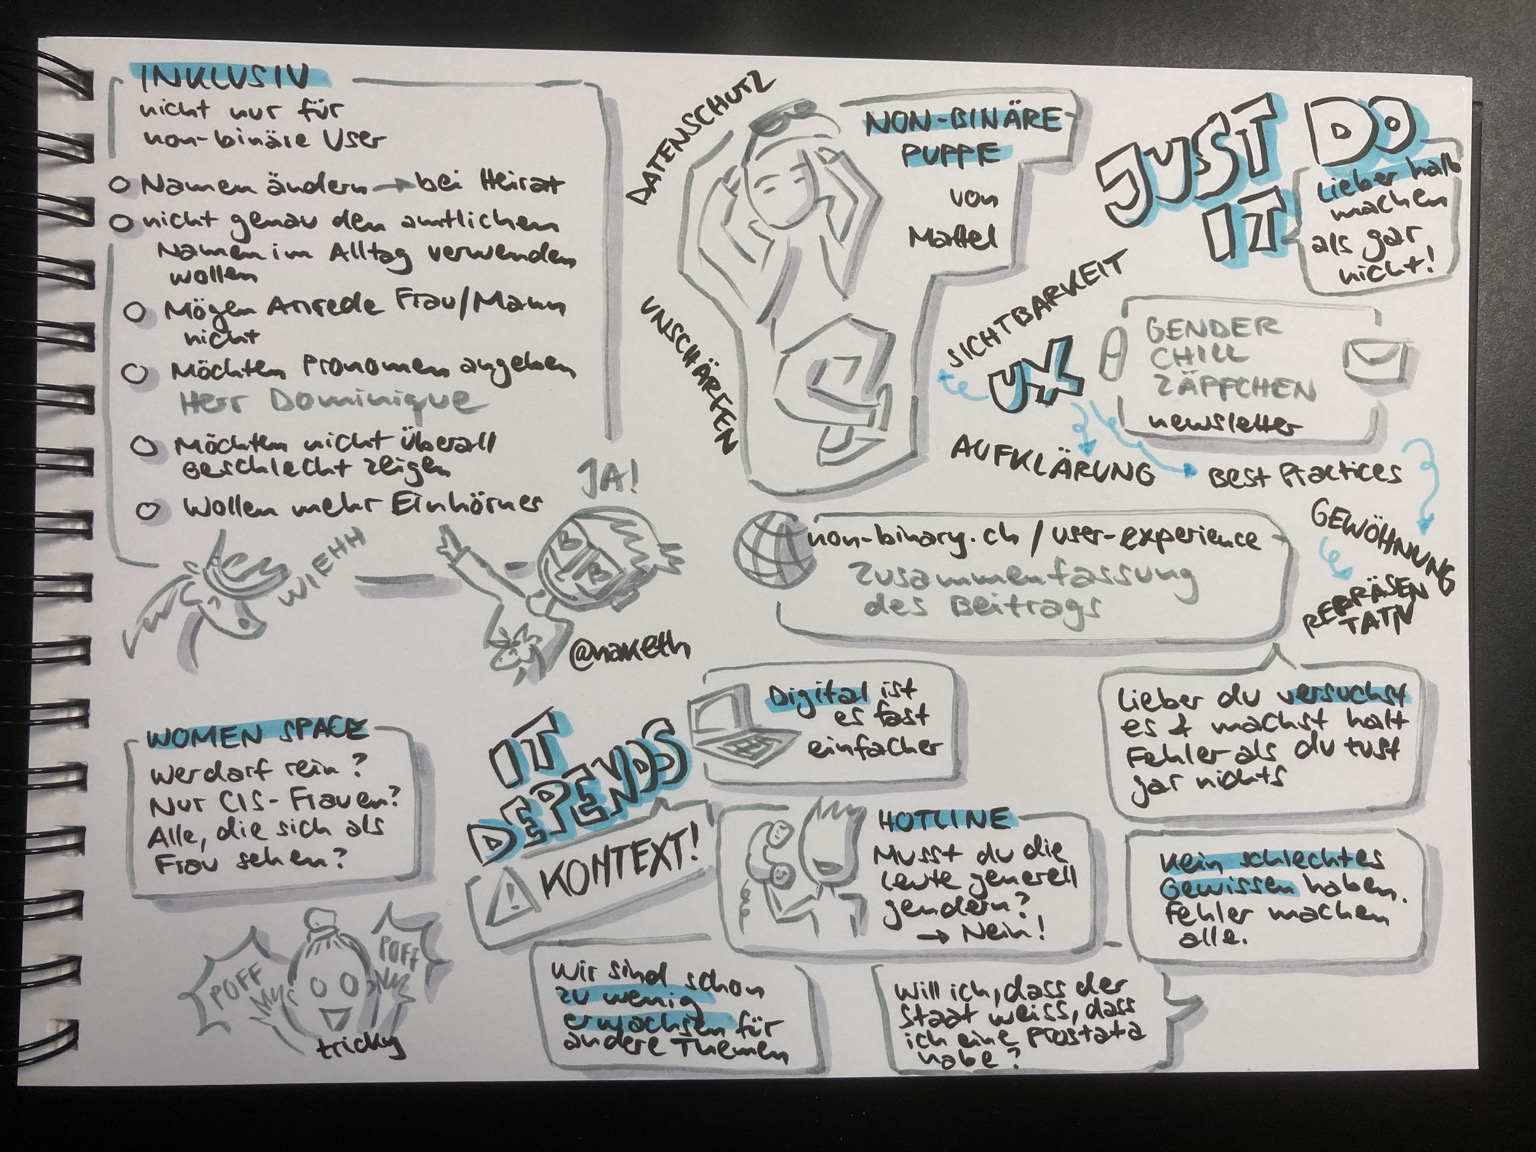 INKLUSIV
nicht nur für
non-binäre User
Namen ändern → bei Heirat
nicht genau den amtlichen
Namen im Alltag verwenden
wollen
Mögen Anrede Frau/Mann
nicht
Möchten Pronomen angeben
Herr Dominique
Möchten nicht überall
Geschlecht zeigen
Wollen mehr Einhörner
WIEHH
JA!
@naketh
DATENSCHUTZ
UNSCHÄRFEN
NON-BINÄRE
PUPPE
von
Mattel
JUST DO
IT
Lieber halb
machen
als gar
nicht!
SICHTBARKEIT
UX
AUFKLÄRUNG
Best Practices
GEWÖHNUNG
REPRÄSEN
TATIV
GENDER
CHILL
ZÄPFCHEN
newsletter
non-binary.ch / user-experience
Zusammenfassung
des Beitrags
WOMEN SPACE
Wer darf rein?
Nur CIS-Frauen?
Alle, die sich als
Frau sehen?
POFF
POFF
tricky
IT
DEPENDS
KONTEXT!
Digital ist
es fast
einfacher
HOTLINE
Musst du die
Leute generell
gendern?
→ Nein!
Wir sind schon
zu wenig
erwachsen für
andere Themen
Will ich, dass der
Staat weiss, dass
ich eine Prostata
habe?
Lieber du versuchst
es & machst halt
Fehler als du tust
gar nichts
Kein schlechtes
Gewissen haben.
Fehler machen
alle.